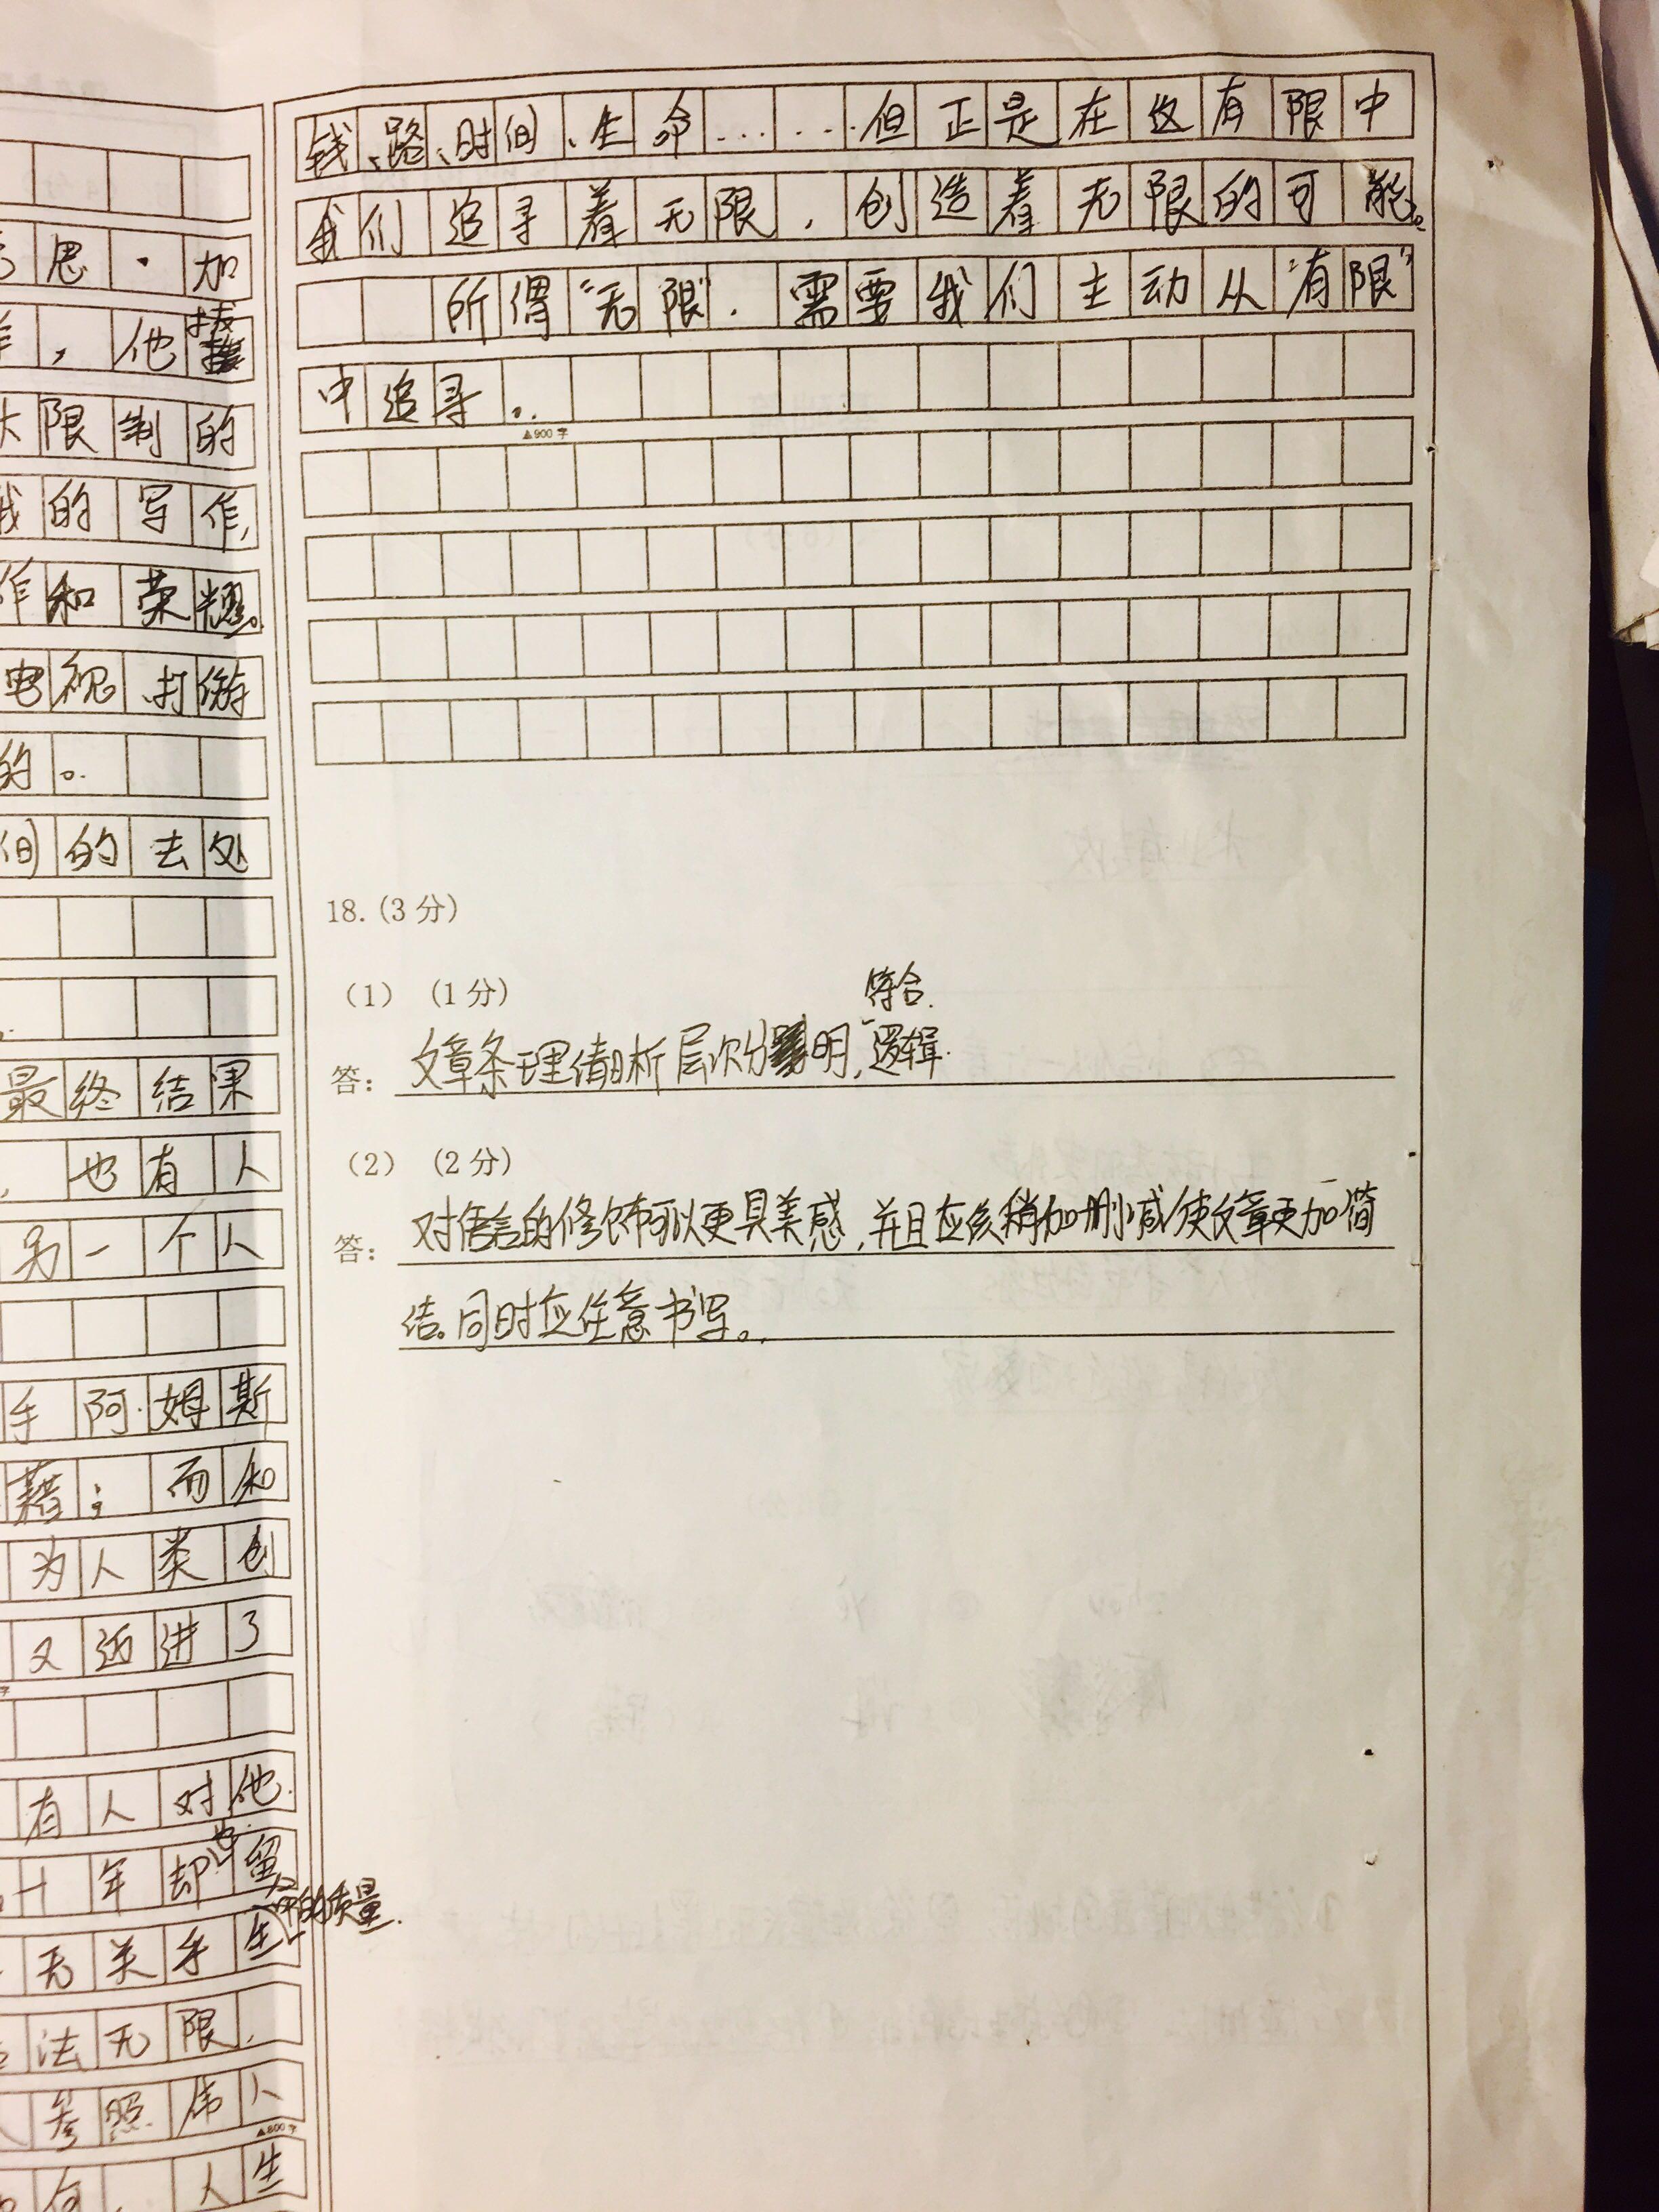 思·加
,他拔
限制的
我的写作,
作和荣耀。
电视、打游
的。
间的去处
最终结果
,也有人
另一个人
手阿姆斯
藉;而如
为人类创
又迈进了
有人对他
十年却也留
无关乎生命的质量.
法无限,
参照伟人
▲800字
何,人生
钱、路、时间、生命......但正是在这有限中
我们追寻着无限,创造着无限的可能。
所谓“无限”,需要我们主动从“有限”
中追寻。
▲900字
18.(3分)
(1) (1分)
答: 文章条理清晰层次分明,符合逻辑.
(2) (2分)
答: 对语言的修饰可以更具美感,并且应该稍加删减使文章更加简
洁。同时应任意书写。